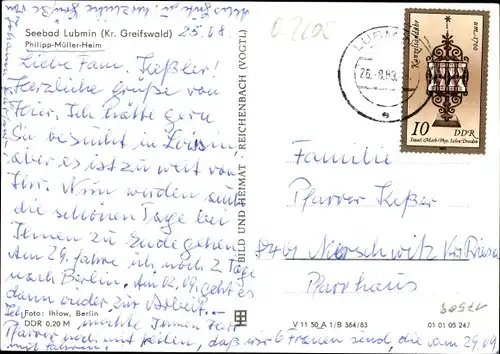 Seebad Lubmin (Kr. Greifswald)
Philipp-Müller-Heim
25.08.
Liebe Fam. Keßler!
Herzliche Grüße von
hier. Ich hätte gern
Sie besucht in
aber es ist zu weit von
hier. Nun werden auch
die schönen Tage bei
Ihnen zu Ende gehen.
Am 29. fahre ich noch 2 Tage
nach Berlin. Am 02.09. geht es
dann wieder zur Arbeit.
Ich möchte Ihnen Herr
Pfarrer noch mit teilen, daß wir
6 Frauen sind, die am 29.09
mit fahren.
Foto: Ihlow, Berlin
DDR 0,20 M
BILD UND HEIMAT · REICHENBACH (VOGTL)
V 11 50 A 1/B 364/83
01 01 05 247
LUBMIN
26.-8.83
Kanzleiuhr
um 1700
10 DDR
Staatl. Math.-Phys. Salon Dresden
Familie
Pfarrer Keßler
8401 Merschwitz Kr. Riesa
Pfarrhaus